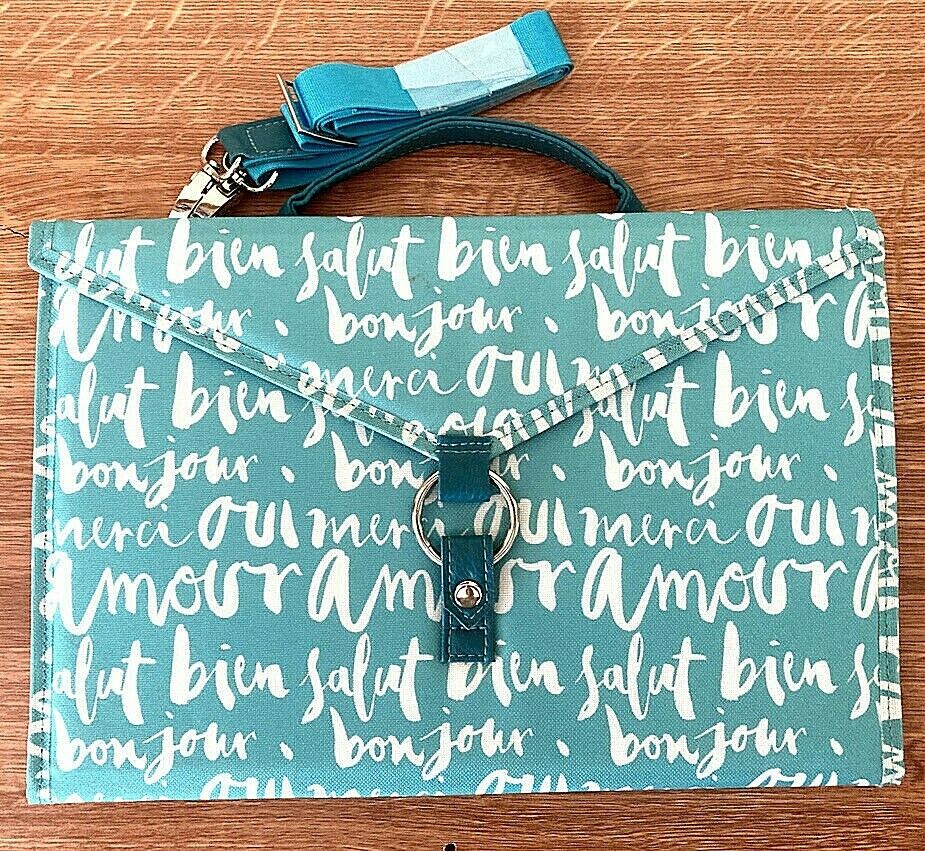 salut bien salut bien salut bien s
amour. bonjour. bonjour a
merci oui
salut bien salut bien s
bonjour. bonjour. bonjour
merci oui merci oui merci oui
amour amour amour
salut bien salut bien salut bien s
bonjour. bonjour. bonjour.